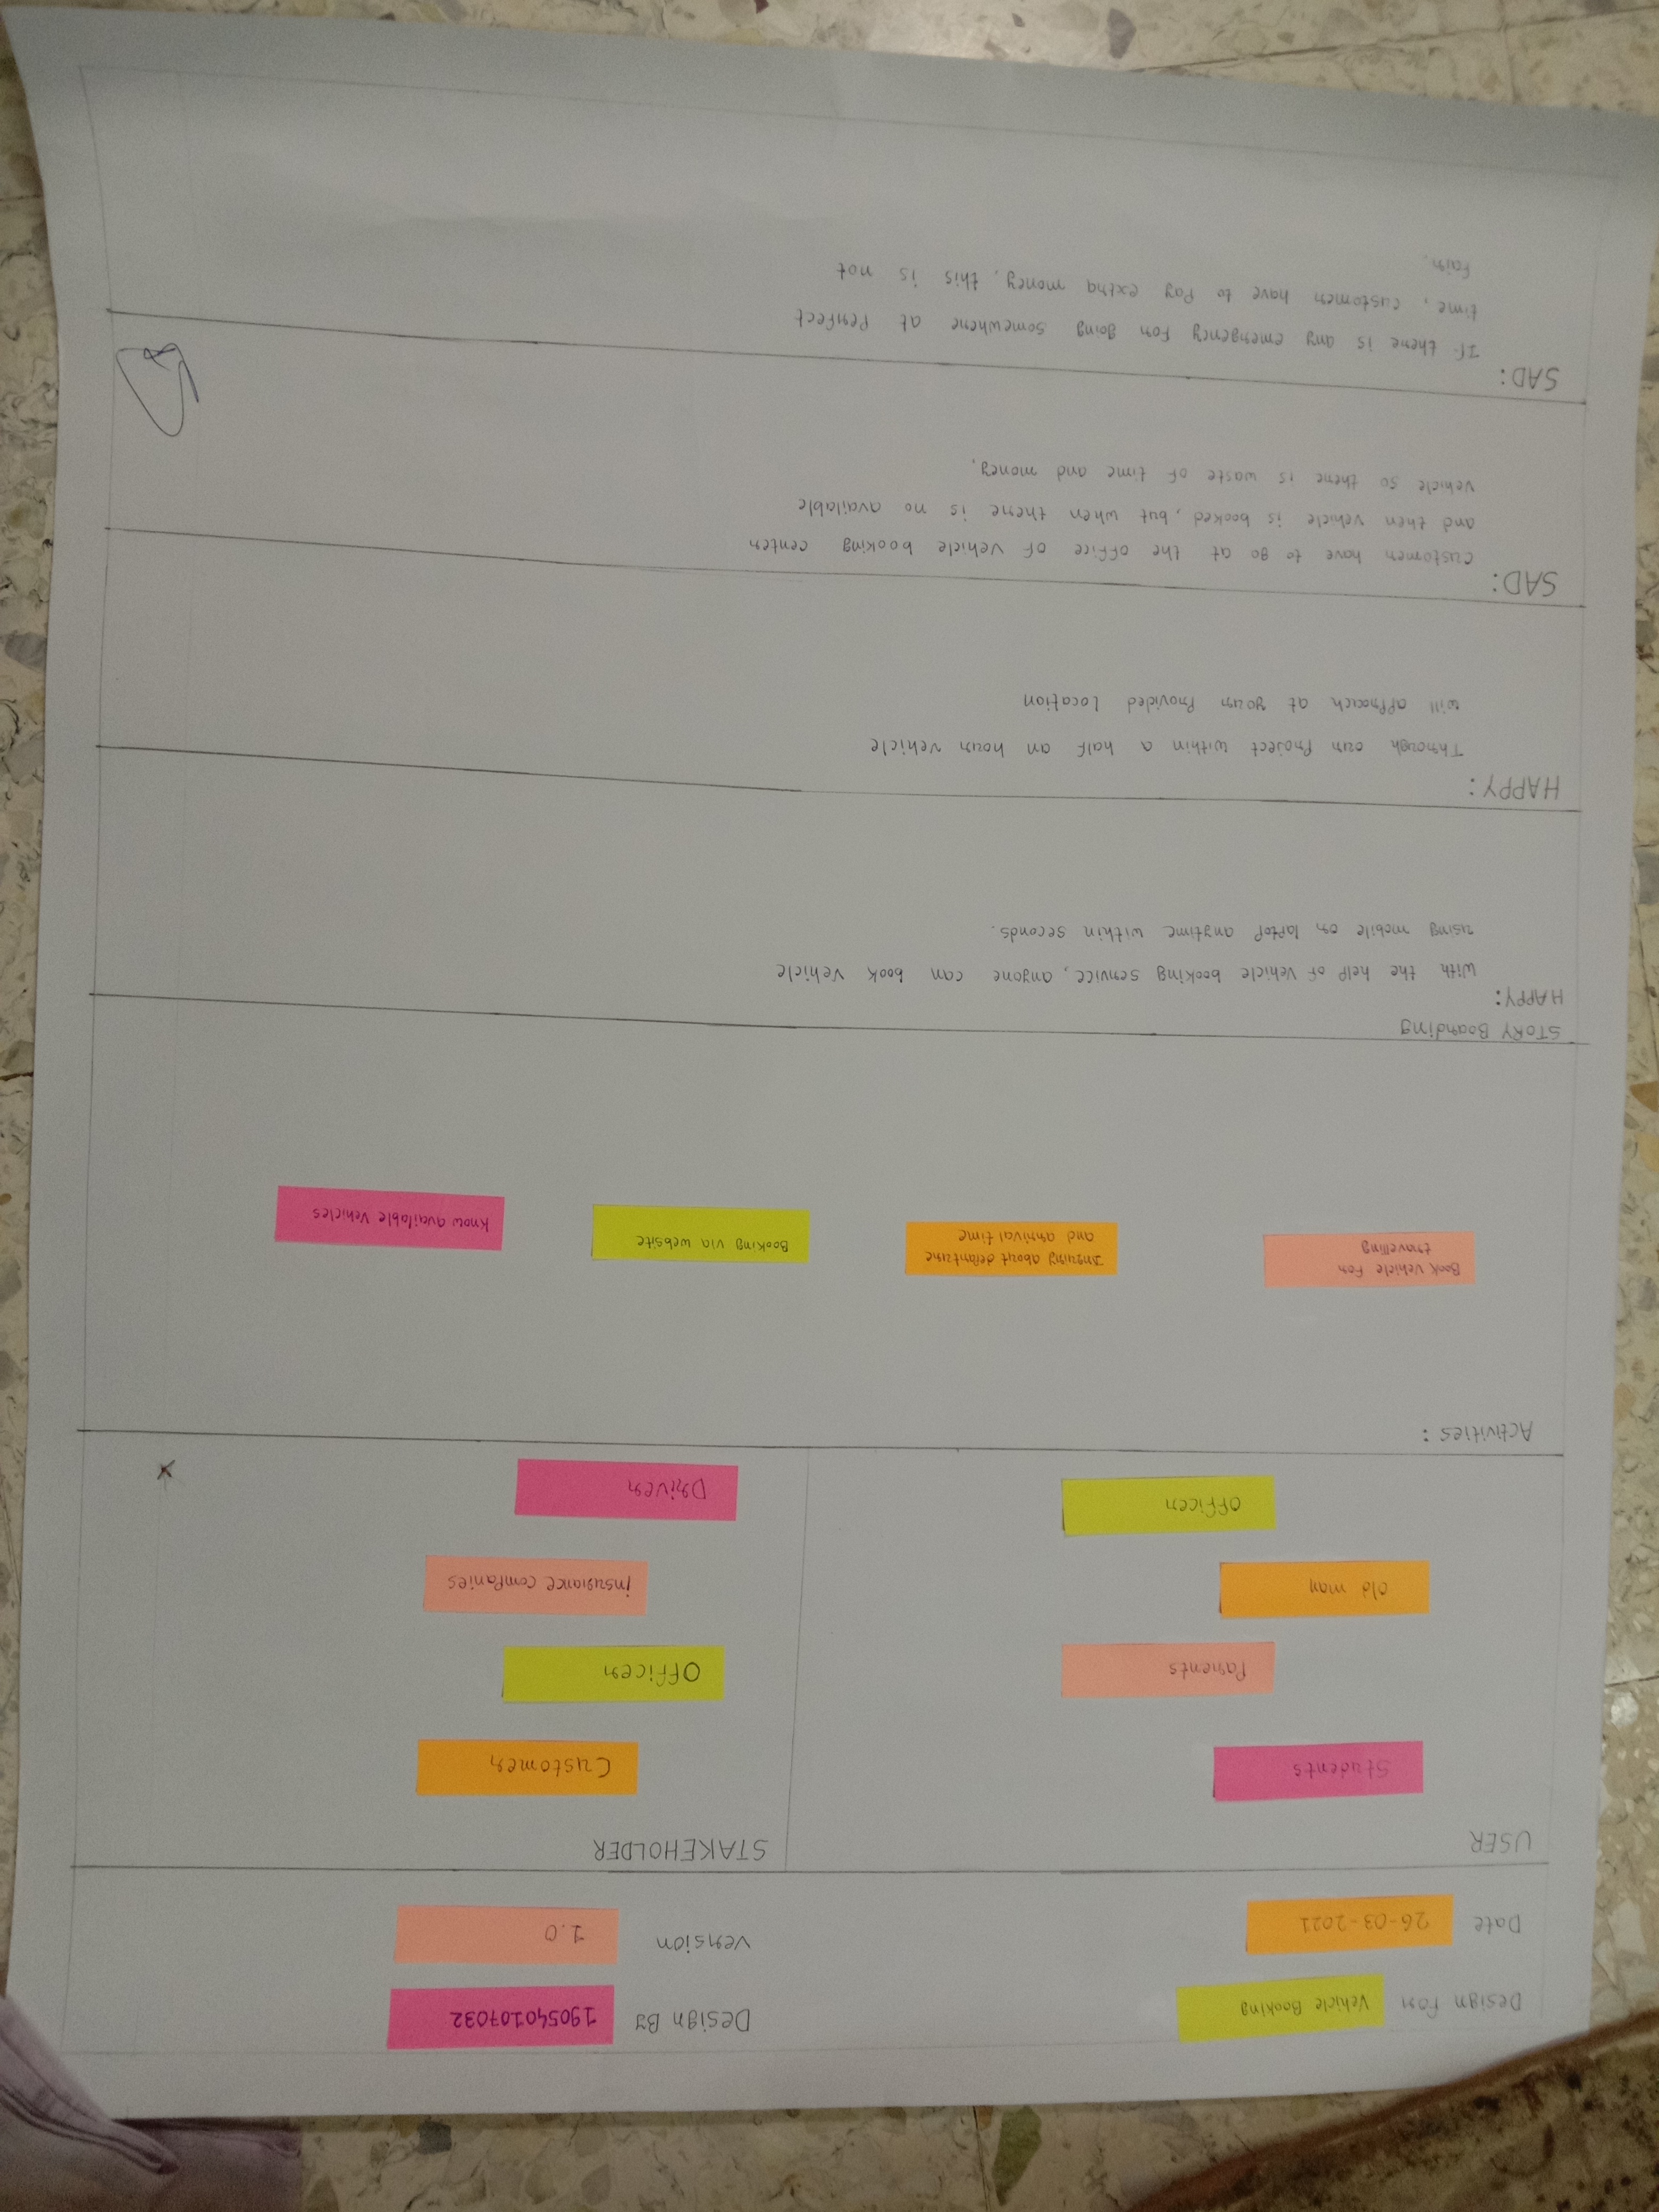 Design For Vehicle Booking
Design By 190540107032
Date 26-03-2021
version 1.0
USER
STAKEHOLDER
Students
Customer
Parents
Officer
old man
insurance companies
officer
Driver
Activities :
Book Vehicle For
travelling
Inquiry about departure
and arrival time
Booking via website
Know available Vehicles
STORY Boarding
HAPPY:
With the help of Vehicle booking service, anyone can book Vehicle
using mobile or laptop anytime within seconds.
HAPPY:
Through our Project within a half an hour vehicle
will approach at your Provided Location
SAD:
customer have to go at the office of Vehicle booking center
and then vehicle is booked, but when there is no available
Vehicle so there is waste of time and money.
SAD:
If there is any emergency For going somewhere at Perfect
time, customer have to Pay extra money, this is not
Fair.